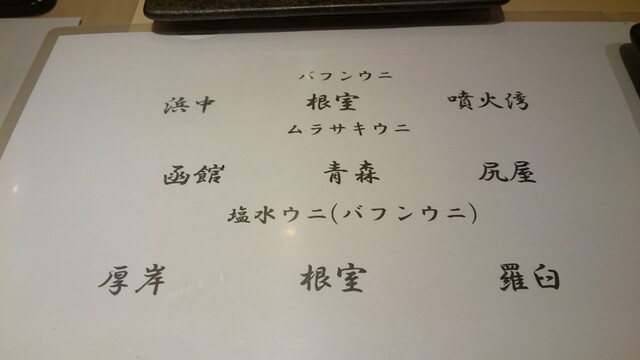 バフンウニ
浜中 根室 噴火湾
ムラサキウニ
函館 青森 尻屋
塩水ウニ(バフンウニ)
厚岸 根室 羅臼